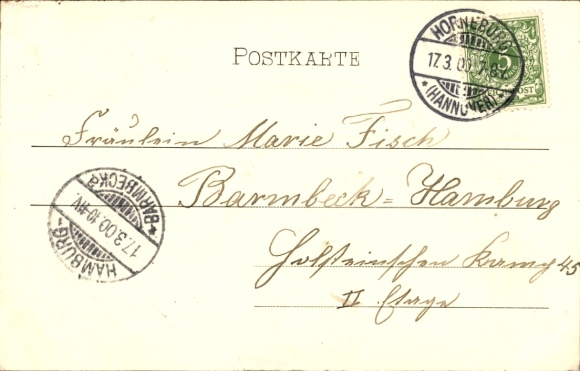 POSTKARTE
HORNEBURG
17.3.00 7-8V.
* (HANNOVER) *
5
Fräulein Marie Fisch
Barmbeck=Hamburg
Holsteinschen Kamp 45
II Etage
HAMBURG-
17.3.00.10-11V.
*BARMBECK a